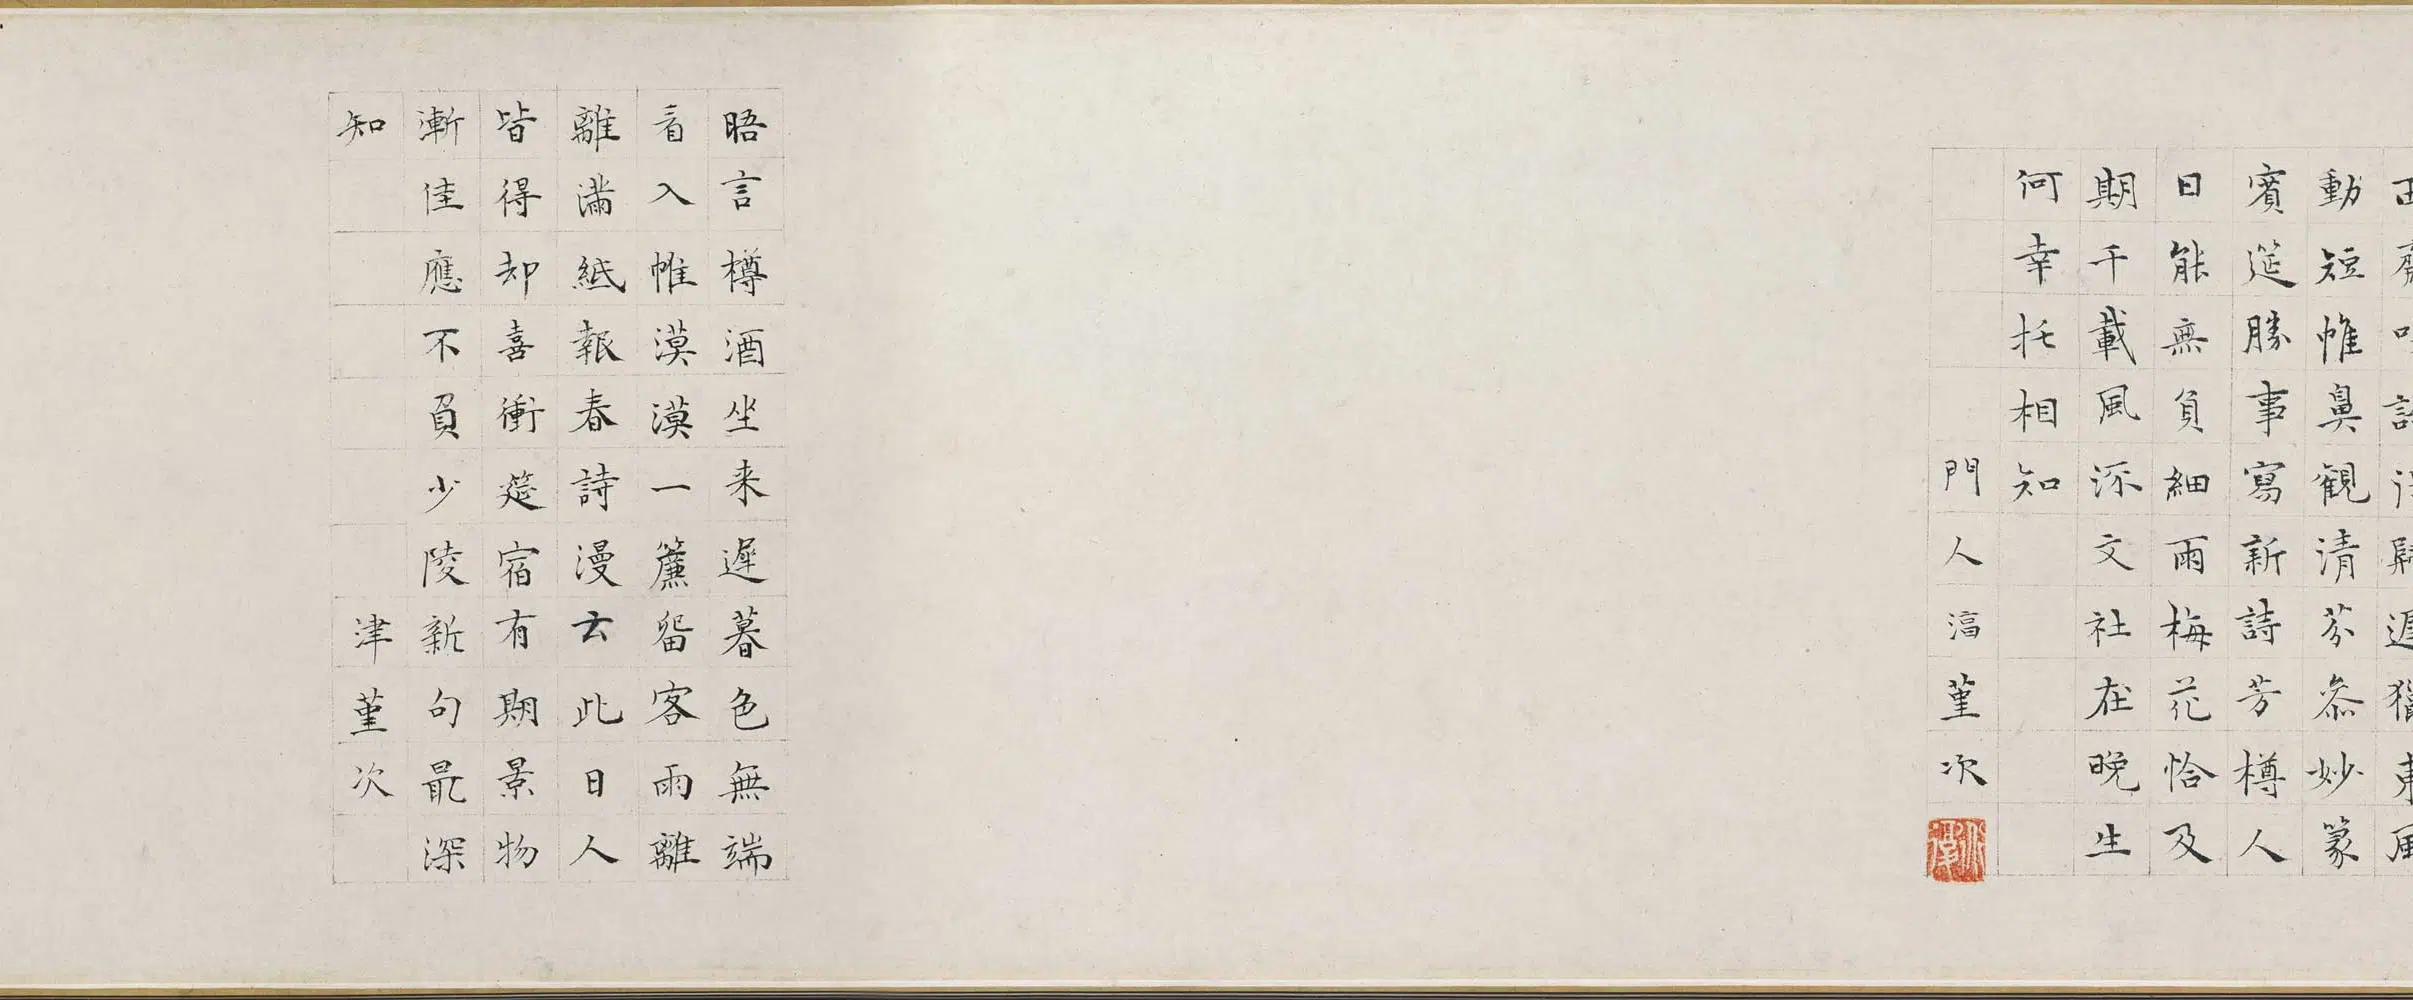 動短帷鼻觀清芬叅妙篆
賓筵勝事寫新詩芳樽人
日能無負細雨梅花恰及
期千載風流文社在晚生
何幸托相知
門人堇次
晤言樽酒坐来遲暮色無端
看入帷漠漠一簾留客雨離
離滿紙報春詩漫云此日人
皆得却喜衝筵宿有期景物
漸佳應不負少陵新句最深
知
津堇次